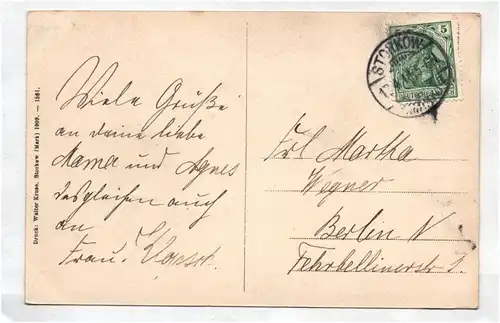 Druck: Walter Kruse, Storkow (Mark) 1909. — 1581.
Viele Grüße
an deine liebe
Mama und Agnes
desgleichen auch
an
Frau
Frl Martha
Wegner
Berlin N
Fehrbellinerstr 1.
STORKOW
5